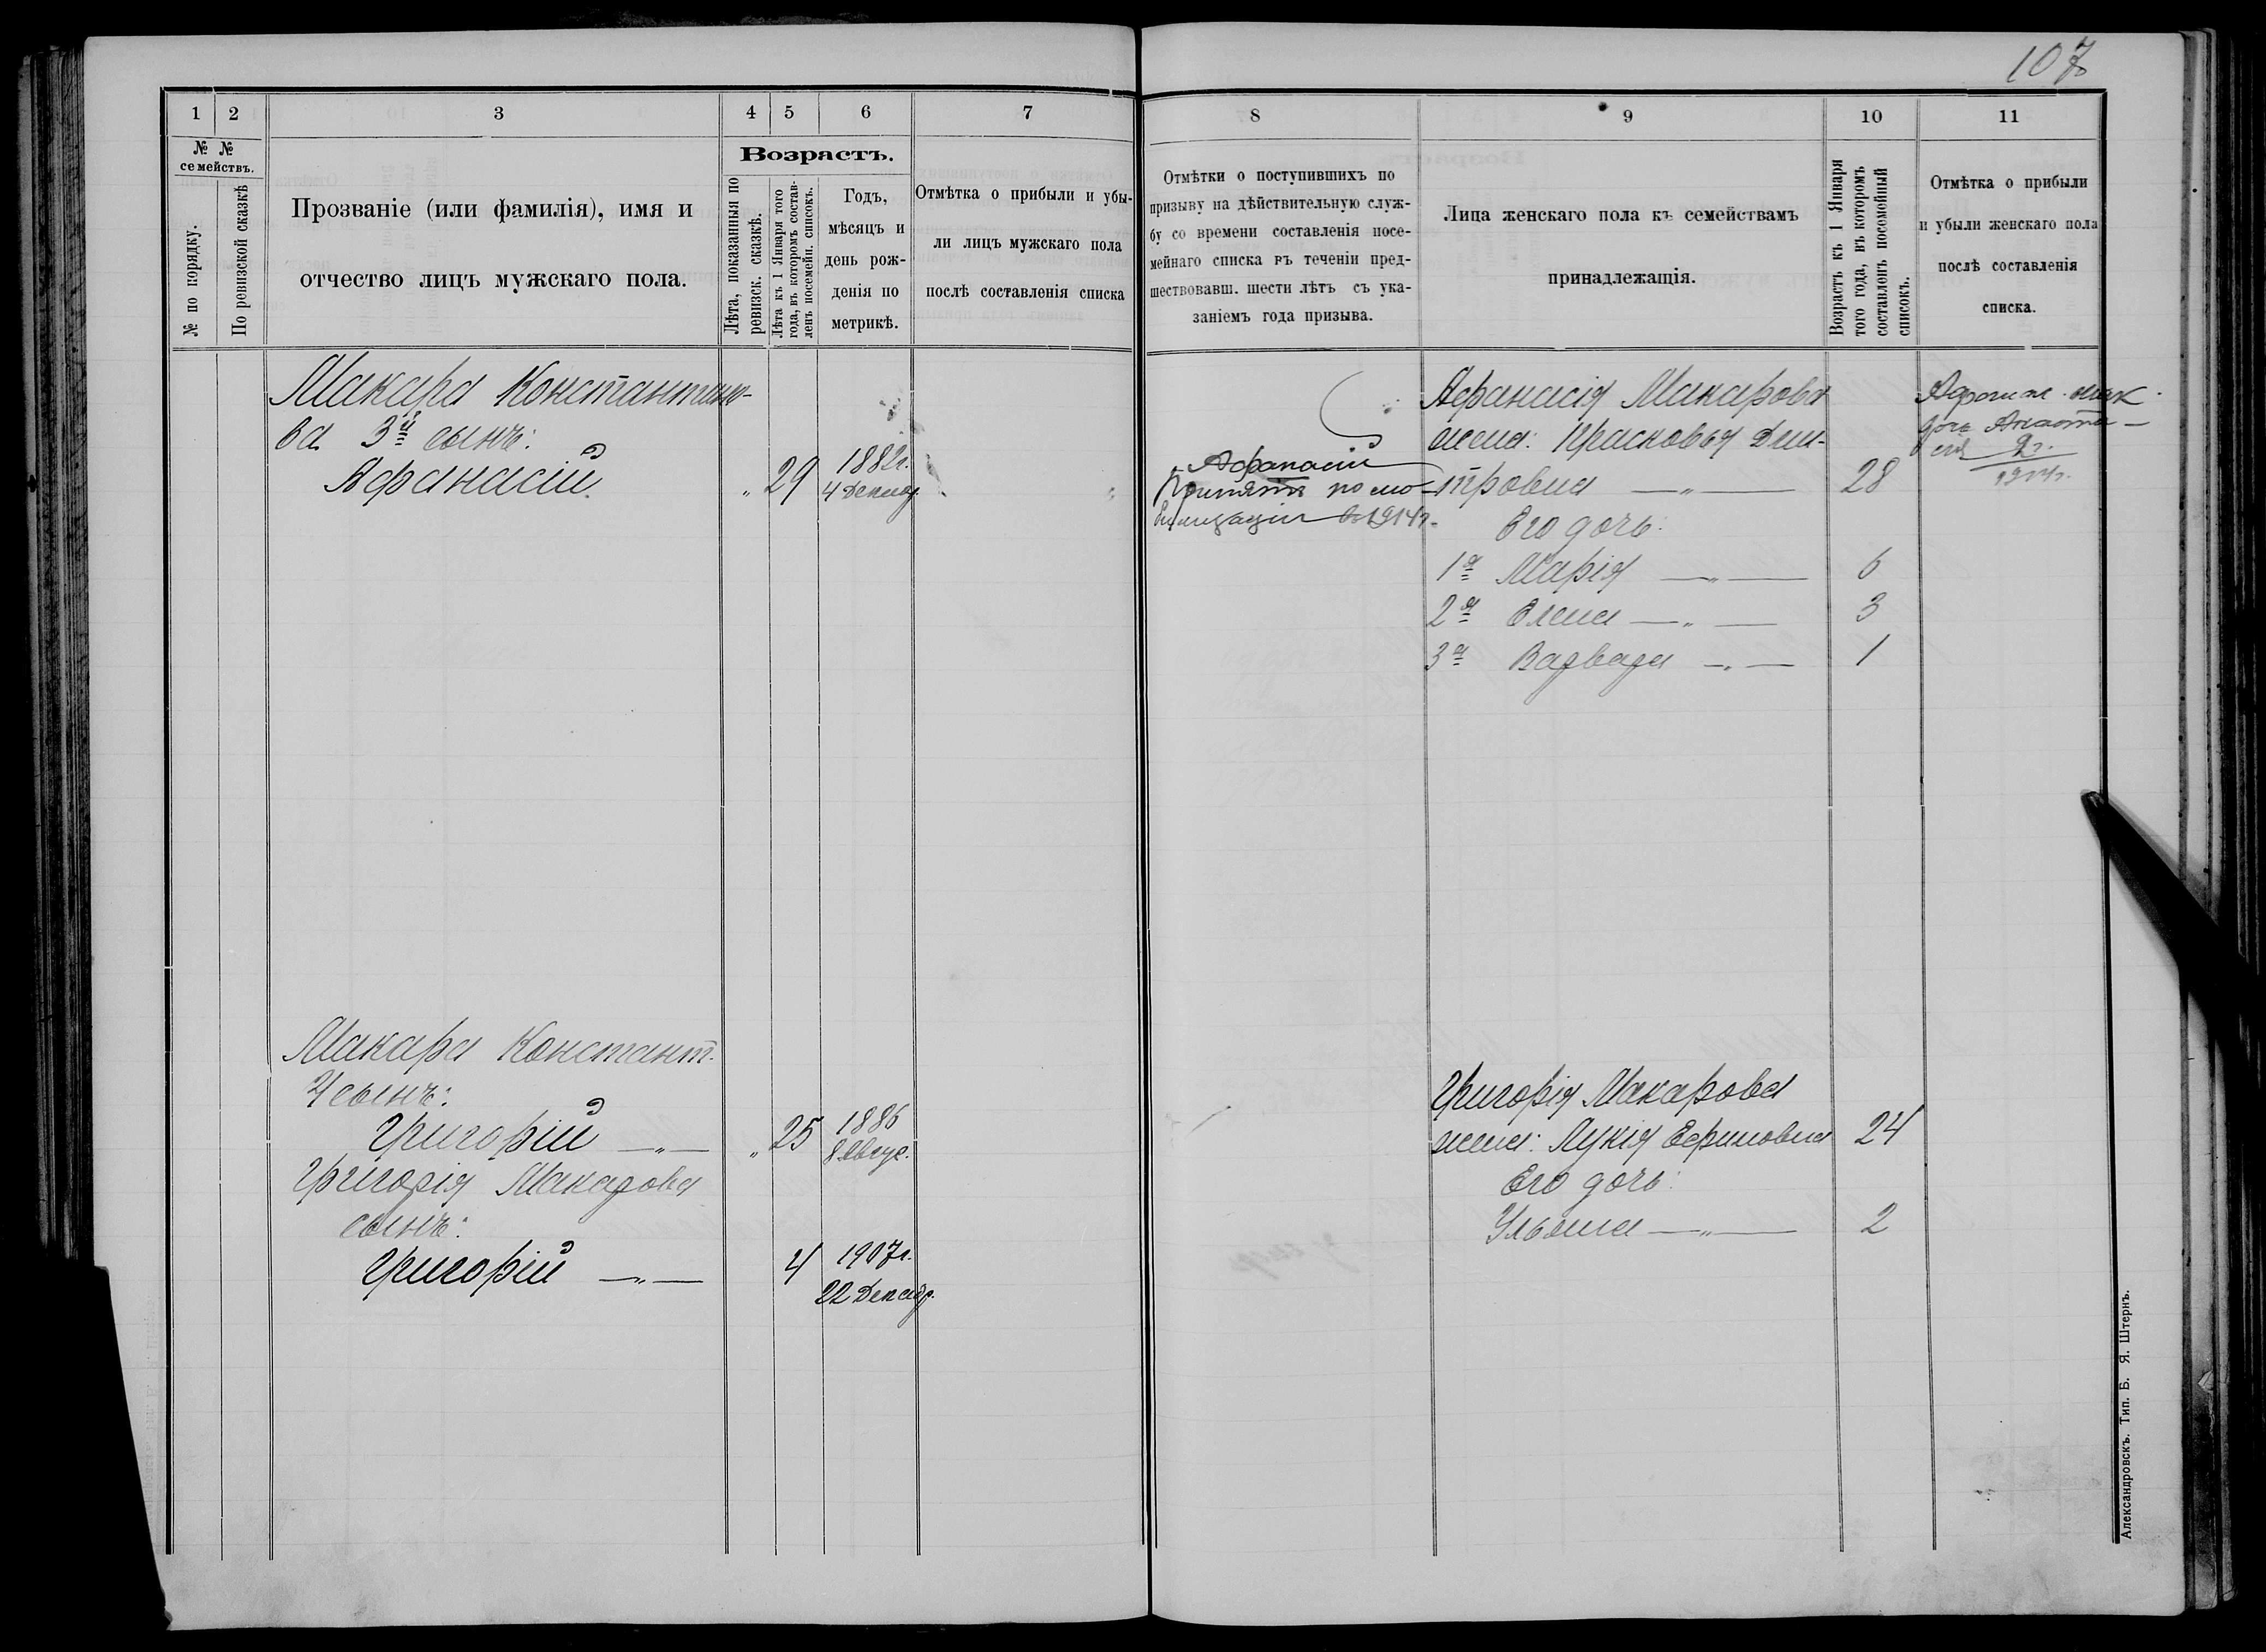 107
1
2
3
4
5
6
7
№ №
семействъ.
№ по порядку.
По ревизской сказкѣ
Прозваніе (или фамилія), имя и
отчество лицъ мужскаго пола.
Возрастъ.
Лѣта, показанныя по
ревизск. сказкѣ.
Лѣта къ 1 Января того
года, въ которомъ состав-
ленъ посемейн. списокъ.
Годъ,
мѣсяцъ и
день рож-
денія по
метрикѣ.
Отмѣтка о прибыли и убы-
ли лицъ мужскаго пола
послѣ составленія списка
Макара Константино-
ва 3й сынъ:
Афанасій
" 29
1882г.
4 Декабр.
Макара Констант.
4 сынъ:
Григорій —"—
" 25
1886
8 Авгус.
Григорія Макарова
сынъ:
Григорій —"—
4
1907г.
22 Декабр.
8
9
10
11
Отмѣтки о поступившихъ по
призыву на дѣйствительную служ-
бу со времени составленія посе-
мейнаго списка въ теченіи пред-
шествовавш. шести лѣтъ съ ука-
заніемъ года призыва.
Лица женскаго пола къ семействамъ
принадлежащія.
Возрастъ къ 1 Января
того года, въ которомъ
составленъ посемейный
списокъ.
Отмѣтка о прибыли
и убыли женскаго пола
послѣ составленія
списка.
Афанасій
Принятъ по мо-
билизаціи въ 1914г.
Афанасія Макарова
жена: Прасковья Дми-
тровна —"— 28
Его дочь:
1я Марія —"— 6
2я Елена —"— 3
3я Варвара —"— 1
дочь Анаста-
сія
Григорія Макарова
жена: Лукія Ефимовна 24
Его дочь:
Ульяна —"— 2
Александровскъ. Тип. Б. Я. Штернъ.